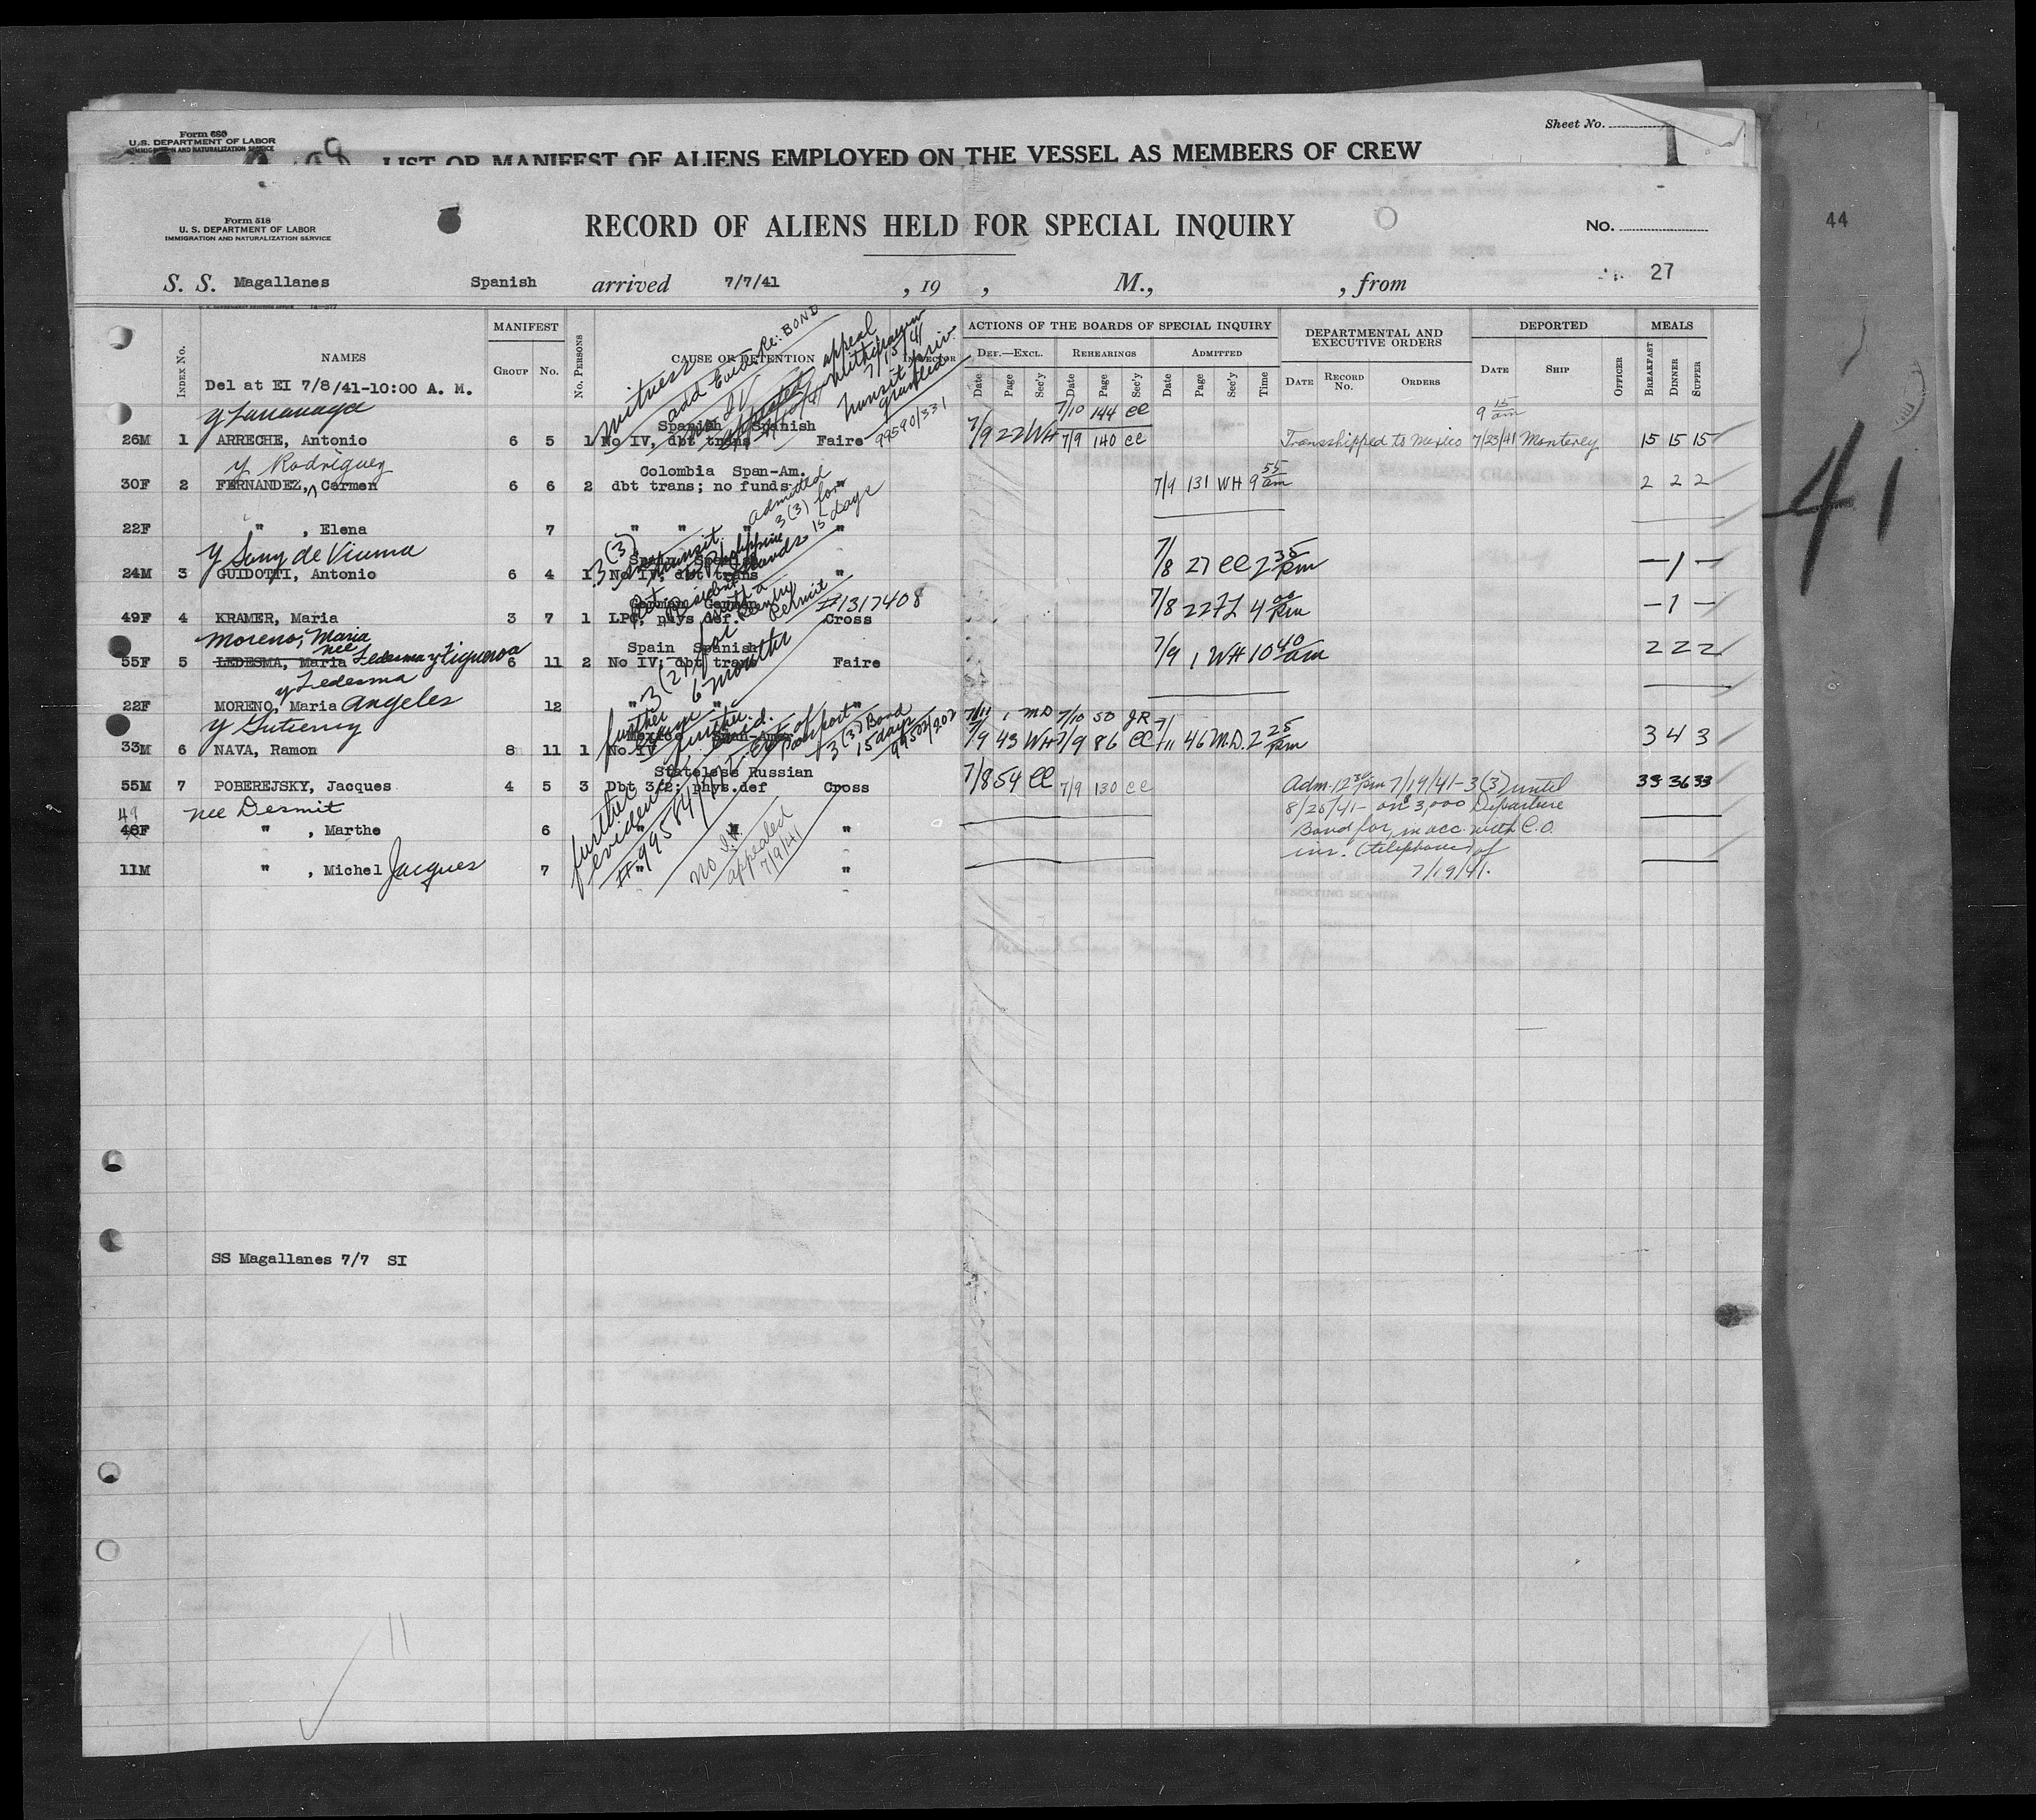 Form 680
U. S. DEPARTMENT OF LABOR
IMMIGRATION AND NATURALIZATION SERVICE
Sheet No.
1
LIST OR MANIFEST OF ALIENS EMPLOYED ON THE VESSEL AS MEMBERS OF CREW
Form 518
U. S. DEPARTMENT OF LABOR
IMMIGRATION AND NATURALIZATION SERVICE
RECORD OF ALIENS HELD FOR SPECIAL INQUIRY
No.
44
27
S. S. Magallanes Spanish arrived 7/7/41 , 19 , M., , from
INDEX No. NAMES MANIFEST GROUP No. No. PERSONS CAUSE OF DETENTION INSPECTOR
ACTIONS OF THE BOARDS OF SPECIAL INQUIRY
DEF.—EXCL. REHEARINGS ADMITTED
Date Page Sec'y Date Page Sec'y Date Page Sec'y Time
DEPARTMENTAL AND EXECUTIVE ORDERS
DATE RECORD No. ORDERS
DEPORTED
DATE SHIP OFFICER
MEALS
BREAKFAST DINNER SUPPER
Del at EI 7/8/41-10:00 A. M.
witness
add Evid. Re: BOND
no IV
appealed 7/10/41
appeal withdrawn 7/15/41
transit priv. granted
99590/331
7/10 144 CC
9 15 am
Spanish Spanish
26M 1 ARRECHE, Antonio 6 5 1 No IV, dbt trans Faire 7/9 22 WH 7/9 140 CC Transshipped to Mexico 7/23/41 Monterey 15 15 15
y Rodriguez
Colombia Span-Am.
30F 2 FERNANDEZ, Carmen 6 6 2 dbt trans; no funds " 7/9 131 WH 9 55 am 2 2 2
22F " , Elena 7 " " " "
admitted 3(3) for 15 days
3(3)
in transit
to Philippine Islands
Spain Spanish
24M 3 GUIDOTTI, Antonio 6 4 1 No IV; dbt trans " 7/8 27 CC 2 35 pm — 1 —
Resident with a Reentry Permit
#1317408
German German
49F 4 KRAMER, Maria 3 7 1 LPC, phys def. Cross 7/8 22 7L 4 00 pm — 1 —
Moreno, Maria
nee Ledesma y Figueroa
Spain Spanish
55F 5 LEDESMA, Maria 6 11 2 No IV; dbt trans Faire 7/9 1 WH 10 40 am 2 2 2
3(2) for 6 months
y Ledesma
22F MORENO, Maria Angeles 12 " "
y Gutierrez
7/11 1 MD 7/10 50 JR
Mexico Span-Amer
33M 6 NAVA, Ramon 8 11 1 No IV " 7/9 43 WH 7/9 86 CC 7/11 46 M.D. 2 25 pm 3 4 3
further
Ext. of Passport
3(3) Bond 15 days
99502/202
Stateless Russian
55M 7 POBEREJSKY, Jacques 4 5 3 Dbt 3/2; phys.def Cross 7/8 54 CC 7/9 130 CC 33 36 33
Adm. 12 30 pm 7/19/41-3(3) until
8/20/41- on $3,000 Departure
Bond for, in acc. with C.O.
ins. (telephone) of
7/19/41.
nee Desmit
49
48F " , Marthe 6 " " "
11M " , Michel Jacques 7 " "
further evidence
No I.V.
appealed 7/9/41
SS Magallanes 7/7 SI
11
41